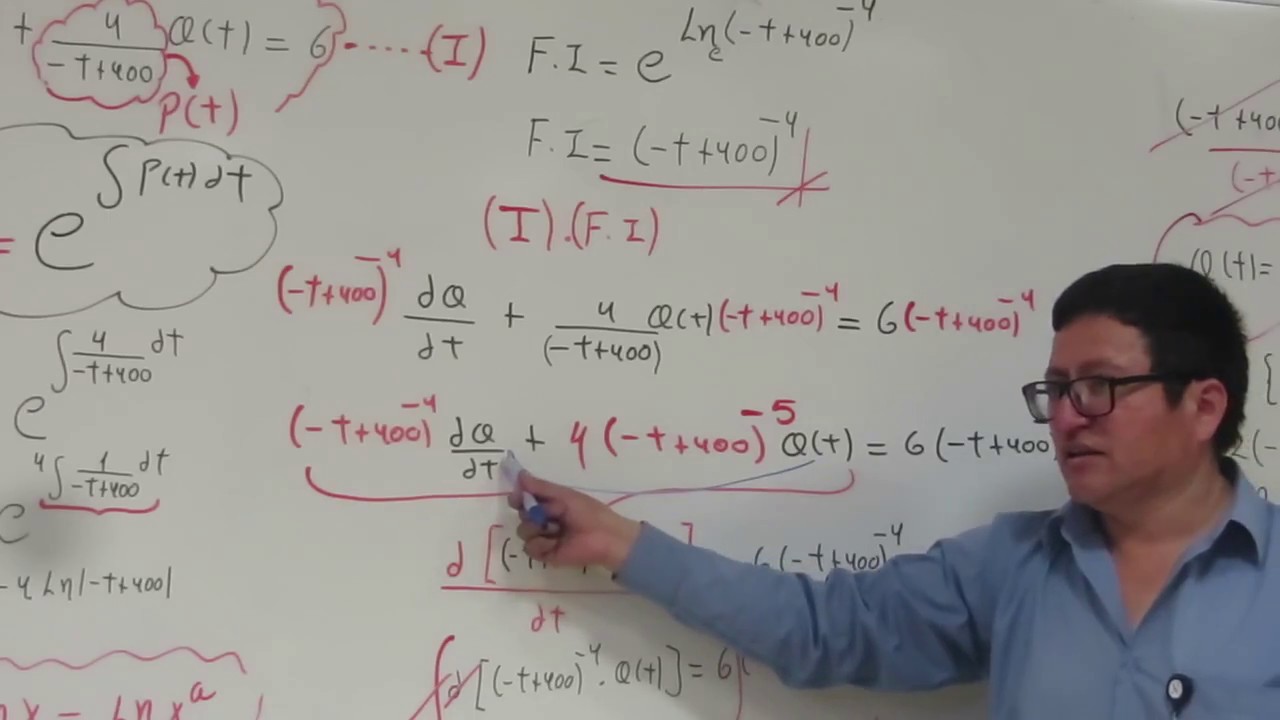 + 4/(-t+400) Q(t) = 6 ..... (I)
P(t)
= e^∫P(t)dt
e^∫ 4/(-t+400) dt
e^4∫ 1/(-t+400) dt
-4 Ln|-t+400|
Ln x^a
F.I = e^Ln_e(-t+400)^-4
F.I = (-t+400)^-4
(I).(F.I)
(-t+400)^-4 dQ/dt + 4/(-t+400) Q(t)(-t+400)^-4 = 6(-t+400)^-4
(-t+400)^-4 dQ/dt + 4(-t+400)^-5 Q(t) = 6(-t+400)
d[(- ]/dt 6(-t+400)^-4
∫d[(-t+400)^-4 . Q(t)] = 6
(-t+400
(-t
Q(t)=